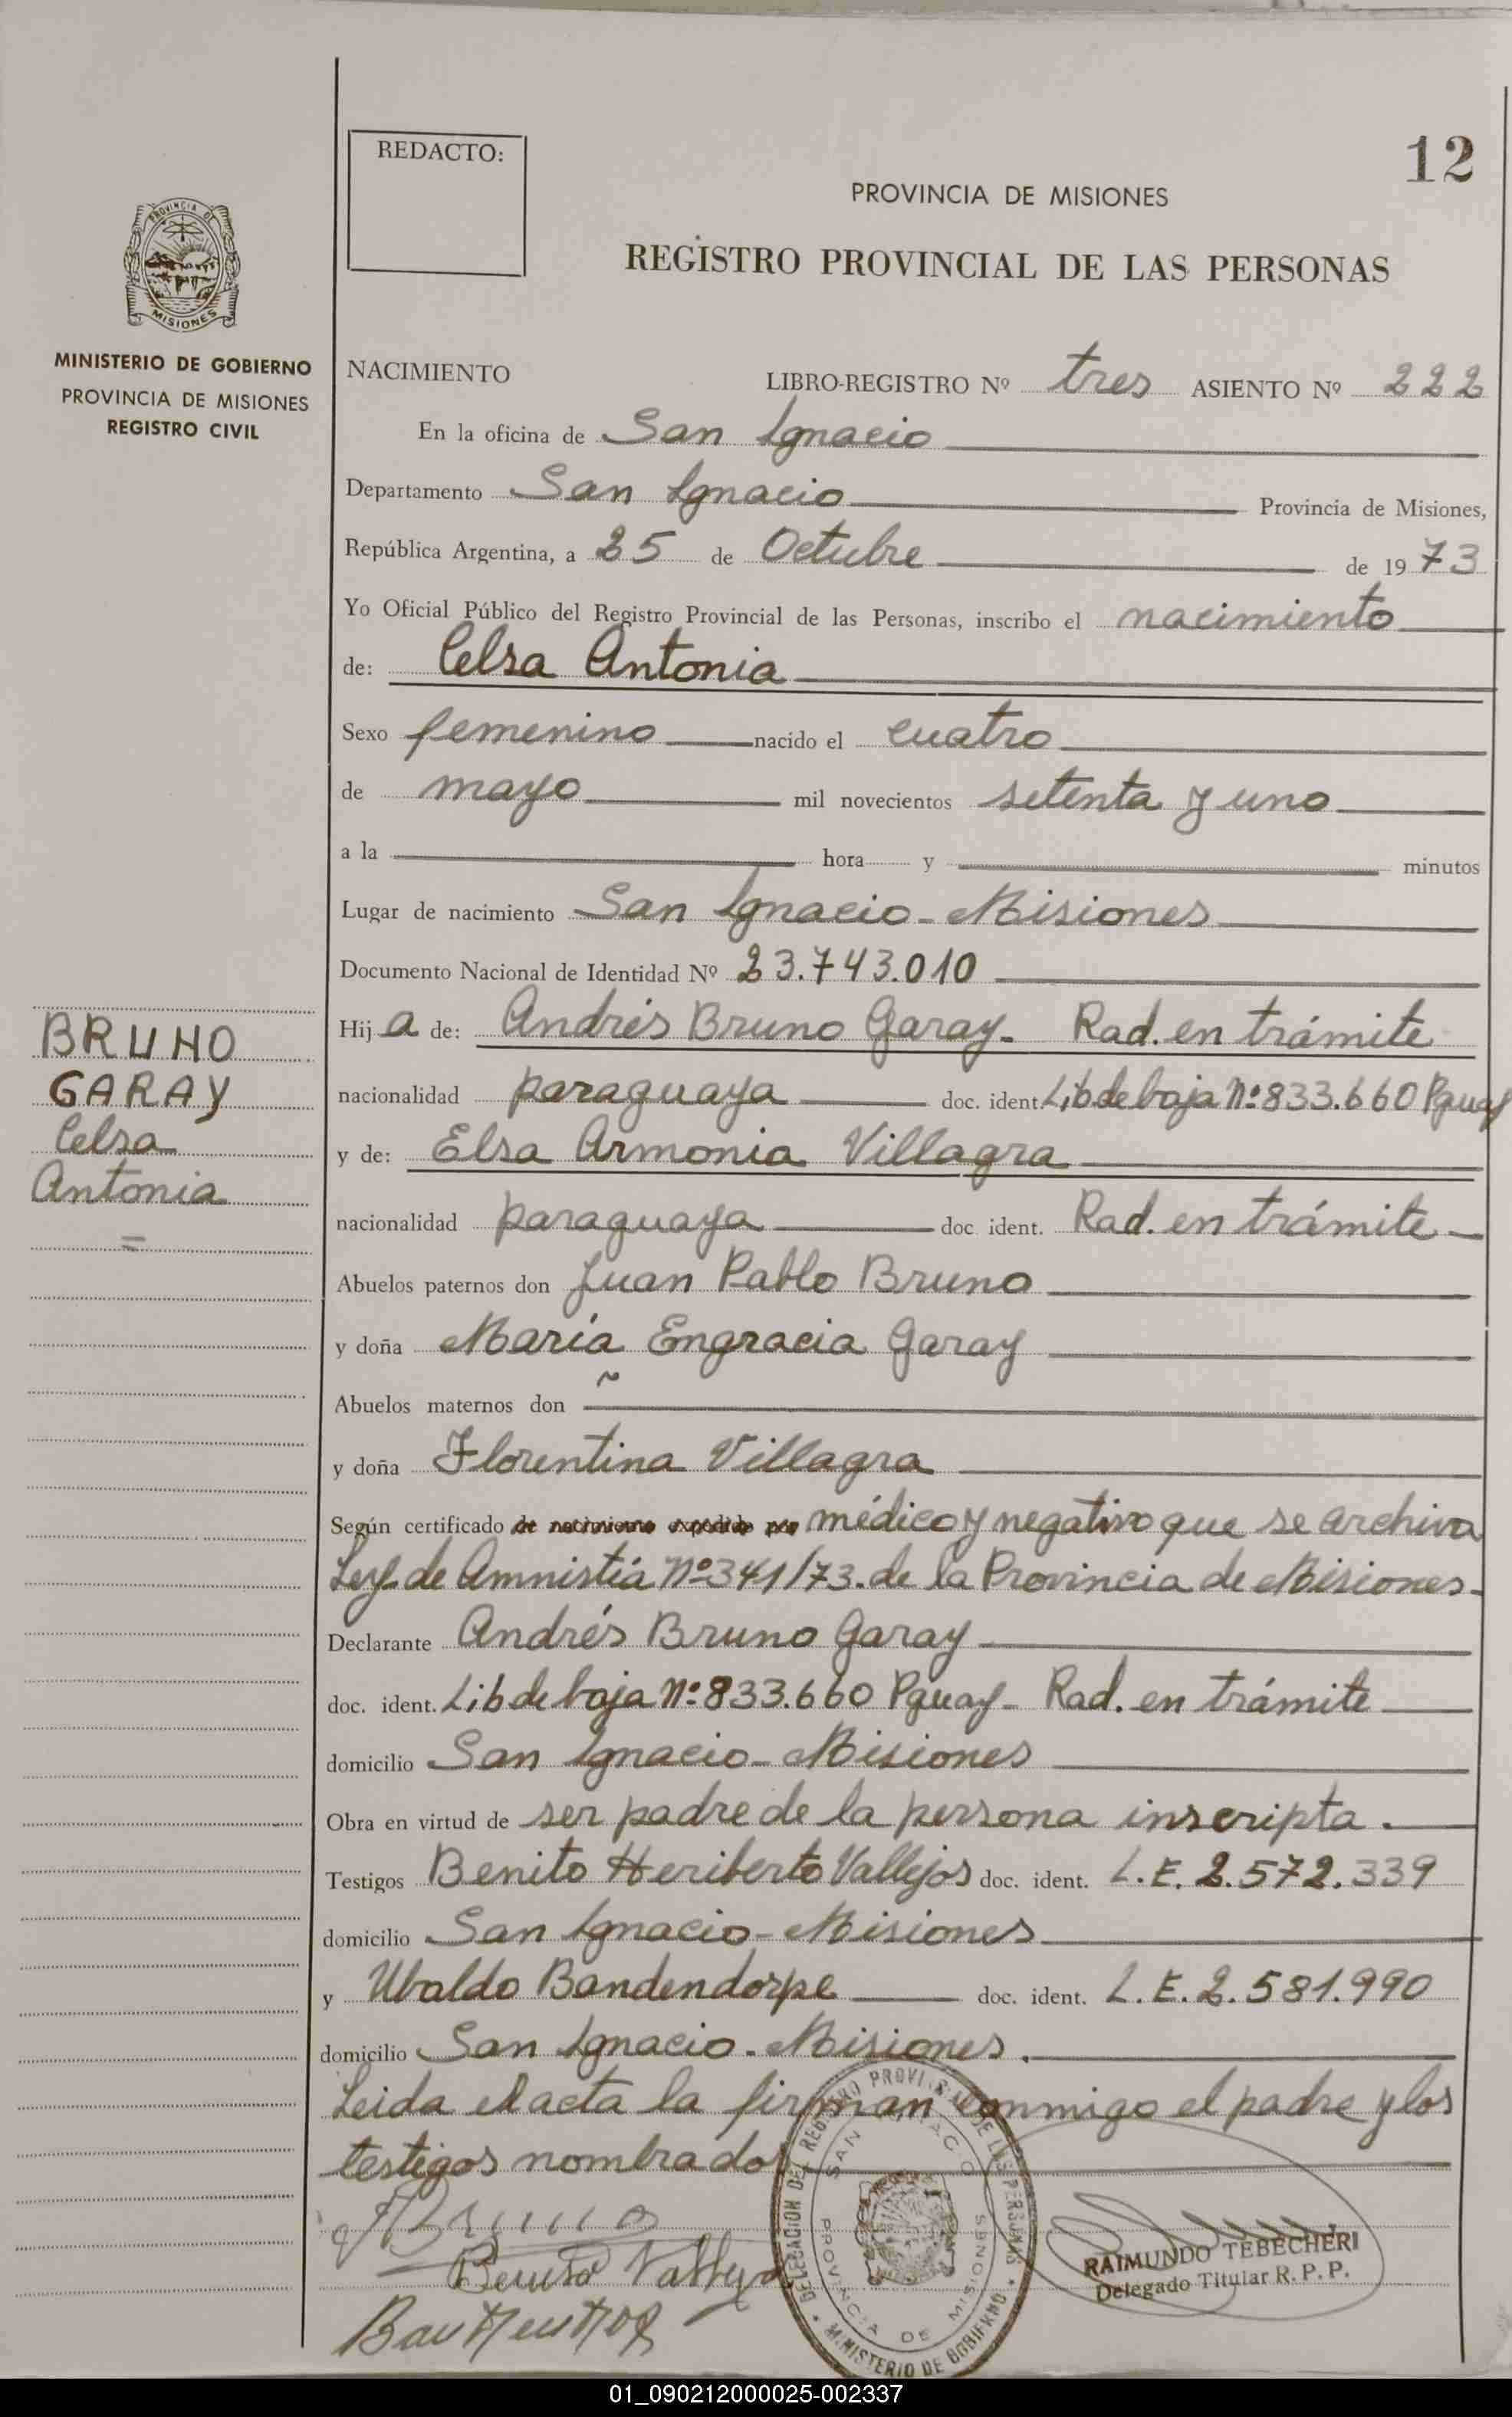 REDACTO:
12
PROVINCIA DE MISIONES
REGISTRO PROVINCIAL DE LAS PERSONAS
PROVINCIA DE
MISIONES
MINISTERIO DE GOBIERNO
PROVINCIA DE MISIONES
REGISTRO CIVIL
NACIMIENTO LIBRO-REGISTRO Nº tres ASIENTO Nº 222
En la oficina de San Ignacio
Departamento San Ignacio Provincia de Misiones,
República Argentina, a 25 de Octubre de 1973
Yo Oficial Público del Registro Provincial de las Personas, inscribo el nacimiento
de: Celsa Antonia
Sexo femenino nacido el cuatro
de mayo mil novecientos setenta y uno
a la hora y minutos
Lugar de nacimiento San Ignacio - Misiones
Documento Nacional de Identidad Nº 23.743.010
BRUNO
GARAY
Celsa
Antonia
=
Hija de: Andrés Bruno Garay - Rad. en trámite
nacionalidad paraguaya doc. ident. Lib de baja Nº 833.660 Pguay
y de: Elsa Armonia Villagra
nacionalidad paraguaya doc ident. Rad. en trámite
Abuelos paternos don Juan Pablo Bruno
y doña María Engracia Garay
Abuelos maternos don
y doña Florentina Villagra
Según certificado de nacimiento expedido por médico y negativo que se archiva
Ley de Amnistía Nº 341/73. de la Provincia de Misiones-
Declarante Andrés Bruno Garay
doc. ident. Lib de baja Nº 833.660 Pguay - Rad. en trámite
domicilio San Ignacio - Misiones
Obra en virtud de ser padre de la persona inscripta.
Testigos Benito Heriberto Vallejos doc. ident. L.E. 2.572.339
domicilio San Ignacio - Misiones
y Ubaldo Bandendorpe doc. ident. L.E. 2.581.990
domicilio San Ignacio - Misiones.
Leida el acta la firman conmigo el padre y los
testigos nombrados
ABruno
Benito Vallejo
DELEGACION DEL REGISTRO PROVINCIAL DE LAS PERSONAS
SAN IGNACIO
PROVINCIA DE MISIONES
MINISTERIO DE GOBIERNO
RAIMUNDO TEBECHERI
Delegado Titular R. P. P.
01_090212000025-002337